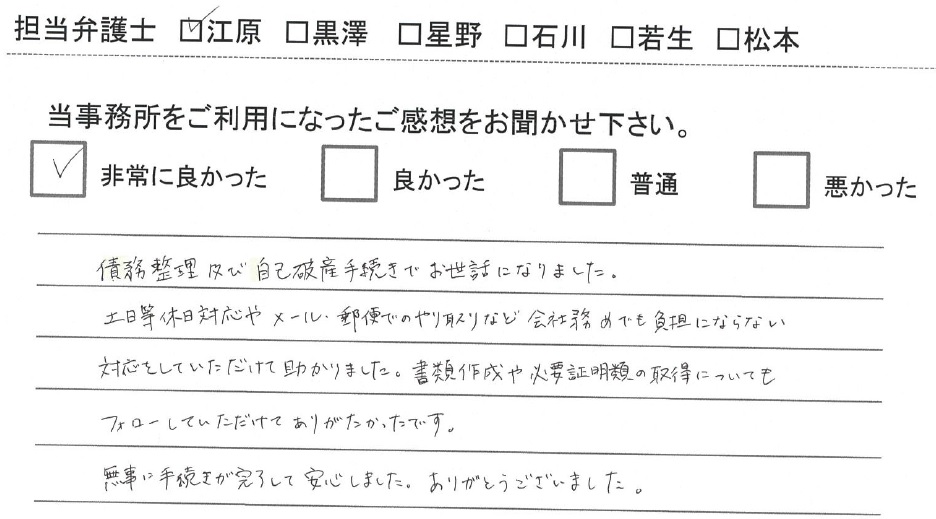 担当弁護士 ☑江原 □黒澤 □星野 □石川 □若生 □松本
当事務所をご利用になったご感想をお聞かせ下さい。
☑ 非常に良かった □ 良かった □ 普通 □ 悪かった
債務整理及び自己破産手続きでお世話になりました。
土日等休日対応やメール・郵便でのやり取りなど会社務めでも負担にならない
対応をしていただけて助かりました。書類作成や必要証明類の取得についても
フォローしていただけてありがたかったです。
無事に手続きが完了して安心しました。ありがとうございました。